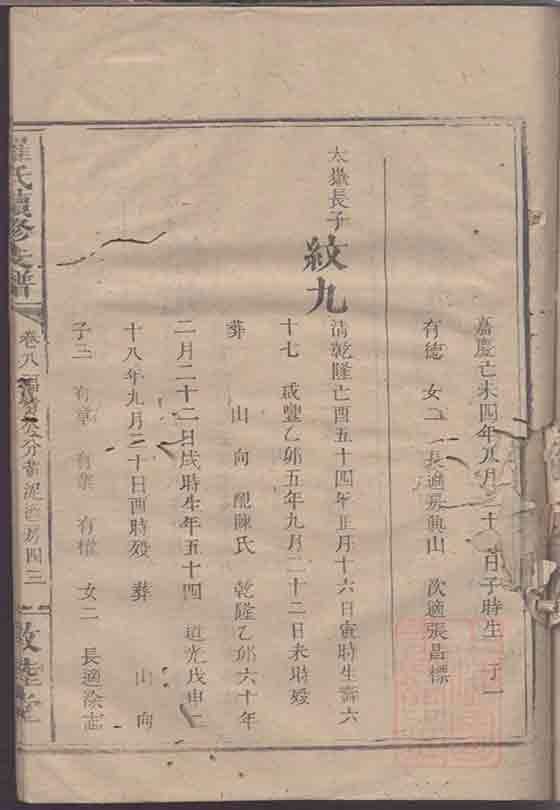 嘉慶亡未四年五月二十 日子時生 子一
有德 女二 長適房興山 次適張昌標
太 長子 紋九
清乾隆亡酉五十四年正月十六日寅時生壽六
十七 咸豐乙卯五年九月二十二日未時歿
葬 山 向 配陳氏 乾隆乙卯六十年
二月二十二日戌時生年五十四 道光戊申二
十八年九月三十日酉時歿 葬 山 向
子三 有章 有業 有權 女二 長適涂志
羅氏續修支譜
卷八 分黄泥 房四三
敦 堂